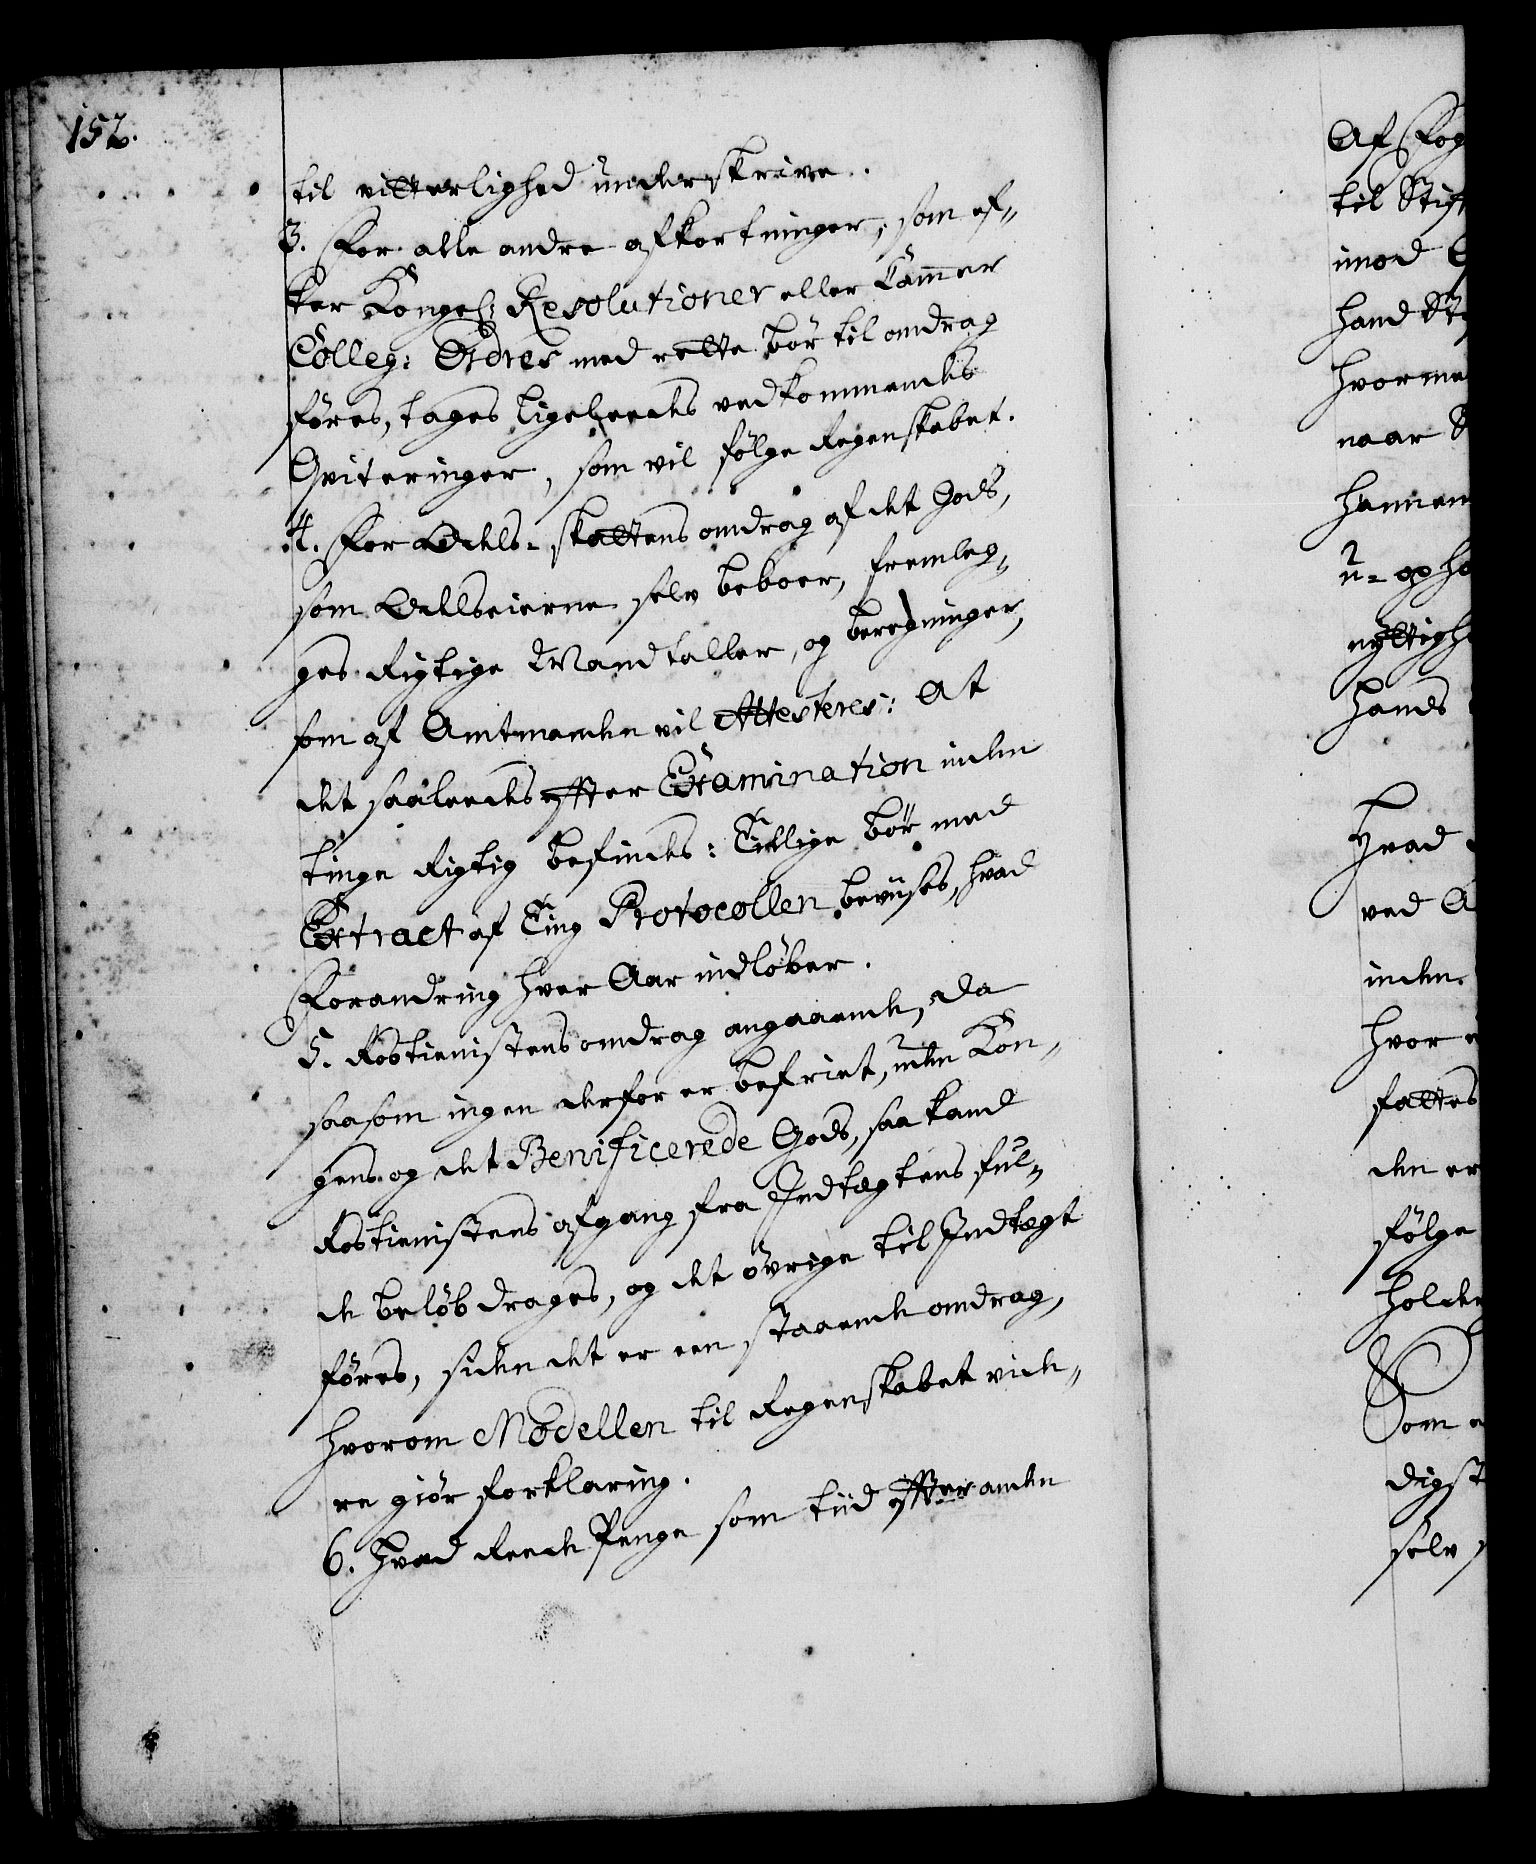 152.
til vitterlighed underskrive.
3. For alle andre afkortninger, som ef„
ter Kongel: Resolutioner eller Cammer
Colleg: Ordres med rette bör til omdrag
föres, tages ligeleedes vedkommendes
Qviteringer, som vil fölge Regenskabet.
4. For Odels-skattens omdrag af det Gods,
som Odelseierne selv beboer, fremleg„
ges Rigtige Mandtaller, og beregninger,
som af Amtmanden vil Attesteres: At
det saaleedes effter Examination inden
tinge Rigtig befindes: Tillige bör med
Extract af Ting Protocollen beviises, hvad
Forandring hver Aar indlöber.
5. Rostienistens omdrag angaaende, da
saasom ingen derfor er befriet, uden Kon„
gens og det Benificerede Gods, saa kand
Rostienistens afgang fra Indtægtens ful„
de belöb drages, og det övrige til Indtægt
föres, siden det er een staaende omdrag,
hvorom Modellen til Regenskabet vide„
re giör forklaring.
6. Hvad Reede Penge som tiid effter anden
Af Fog
til Stift
imod
hand
hvorme
naar
hannem
u-
nöttigh
hands
Hvad
ved A
inden
hvor
fattes
den er
fölge
holden
Som
digst
selv